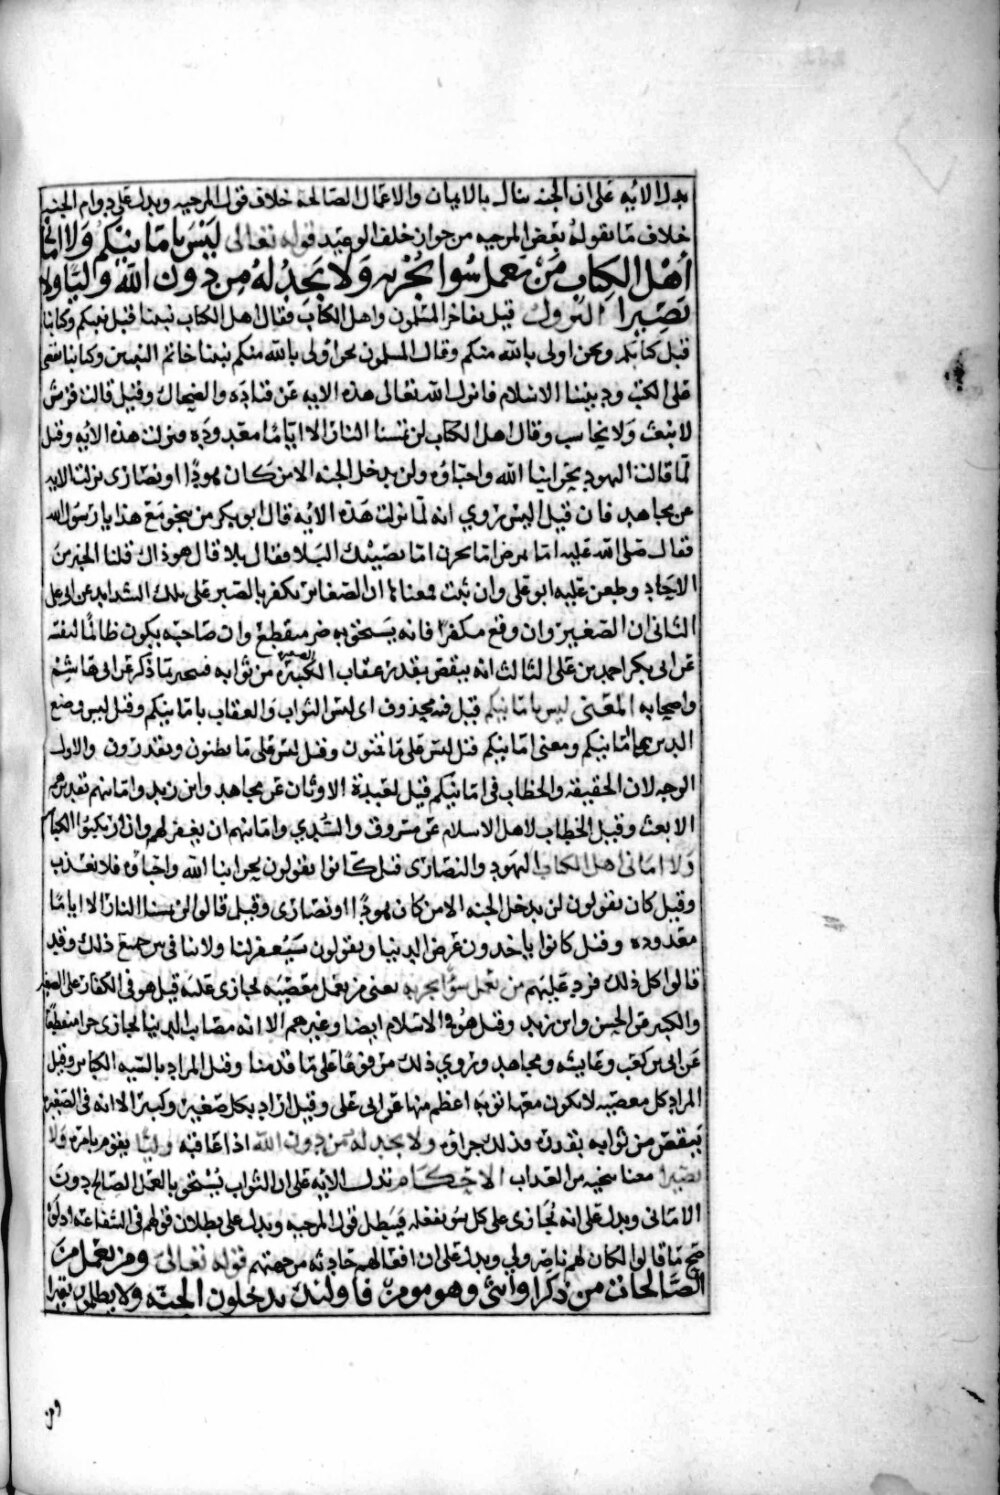 يدل الايه على ان الجنه تنال بالايمان والاعمال الصالحة خلاف قول المرجيه ويدل على دوام الجنه
خلاف ما يقوله بعض المرجيه من جواز خلف الوعيد قوله تعالى ليس بامانيكم ولا اماني
اهل الكتاب من يعمل سوا يجز به ولا يجد له من دون الله وليا ولا
نصيرا النزول قيل تفاخر المسلمون واهل الكتاب فقال اهل الكتاب نبينا قبل نبيكم وكتابنا
قبل كتابكم ونحن اولى بالله منكم وقال المسلمون نحن اولى بالله منكم نبينا خاتم النبيين وكتابنا يقضي
على الكتب وديننا الاسلام فانزل الله تعالى هذه الايه عن قتاده والضحاك وقيل قالت قريش
لا نبعث ولا نحاسب وقال اهل الكتاب لن تمسنا النار الا اياما معدوده فنزلت هذه الايه وقيل
لما قالت اليهود نحن ابنا الله واحباوه ولن يدخل الجنه الا من كان هودا او نصارى نزلت الايه
عن مجاهد فان قيل اليس روي انه لما نزلت هذه الايه قال ابو بكر من ينجو مع هذا يا رسول الله
فقال صلى الله عليه اما تمرض اما تحزن اما تصيبك البلا فقال بلا قال هو ذاك قلنا الخبر من
الاحاد وطعن عليه ابو علي وان ثبت فمعناه ان الصغاير تكفر بالصبر على تلك الشدايد عن ابي علي
الثاني ان الصغير وان وقع مكفرا فانه يستحق به ضرر منقطع وان صاحبه يكون ظالما لنفسه
عن ابي بكر احمد بن علي الثالث انه ينقص بقدر عقاب الصغيرة الكبيرة من ثوابه فيجبر ما ذكر عن ابي هاشم
واصحابه المعنى ليس بامانيكم قيل فيه محذوف اى ليس الثواب والعقاب بامانيكم وقيل ليس وضع
الدين بامانيكم ومعنى امانيكم قيل ليس على ما تتمنون وقيل ليس على ما تظنون وتقدرون والاول
الوجه لان الحقيقه والخطاب في امانيكم قيل لعبدة الاوثان عن مجاهد وابن زيد وامانيهم تقديرهم
الا بعث وقيل الخطاب لاهل الاسلام عن مسروق والسدي وامانيهم ان يغفر لهم وان ارتكبوا الكباير
ولا اماني اهل الكتاب اليهود والنصارى قيل كانوا يقولون نحن ابنا الله واحباوه فلا نعذب
وقيل كان يقولون لن يدخل الجنه الا من كان هودا او نصارى وقيل قالوا لن تمسنا النار الا اياما
معدوده وقيل كانوا ياخذون عرض الدنيا ويقولون سيغفر لنا ولا تنافي بين جميع ذلك وقد
قالوا كل ذلك فرد عليهم من يعمل سوا يجز به يعني من يعمل معصيه يجازى عليه قيل هو في الكفار على الصغير
والكبير عن الحسن وابن زيد وقيل هو في الاسلام ايضا وغيرهم الا انه مصاب الدنيا يجازى جزا منقطعا
عن ابي بن كعب وعايشه ومجاهد وروي ذلك مرفوعا على ما قدمنا وقيل المراد بالسيه الكباير وقيل
المراد كل معصيه لا يكون معها توبه اعظم منها عن ابي علي وقيل اراد بكل صغير وكبير الا انه في الصغيرة
ينقص من ثوابه بقدره فذلك جزاوه ولا يجد له من دون الله اذا عاقبه وليا يقوم بامره ولا
نصيرا معنا ينجيه من العذاب الاحكام تدل الايه على ان الثواب يستحق بالعمل الصالح دون
الاماني ويدل على انه يجازى على كل سو يفعله فيبطل قول المرجيه ويدل على بطلان قولهم في الشفاعه اذ لو
صح ما قالوا لكان لهم ناصر وولي ويدل على ان افعالهم حادثه من جهتهم قوله تعالى ومن يعمل من
الصالحات من ذكر او انثى وهو مومن فاولئك يدخلون الجنه ولا يظلمون نقيرا
ومن